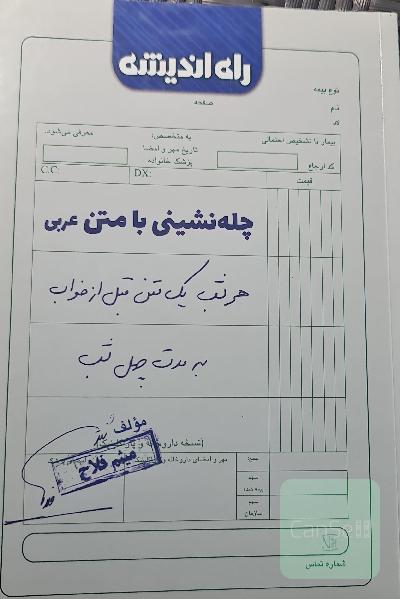 راه اندیشه
نوع بیمه
صفحه
نام
کد
بیمار با تشخیص احتمالی
به متخصص:
معرفی می‌شود.
کد ارجاع
تاریخ مهر و امضا
پزشک خانواده
C.C:
DX:
قیمت
چله‌نشینی با متن عربی
هر شب یک متن قبل از خواب
به مدت چهل شب
مؤلف
میثم فلاح
(نسخه داروخانه و پاراکلینیک)
مهر و امضای داروخانه و
سهم
سهم
سازمان
شماره تماس
CanSell